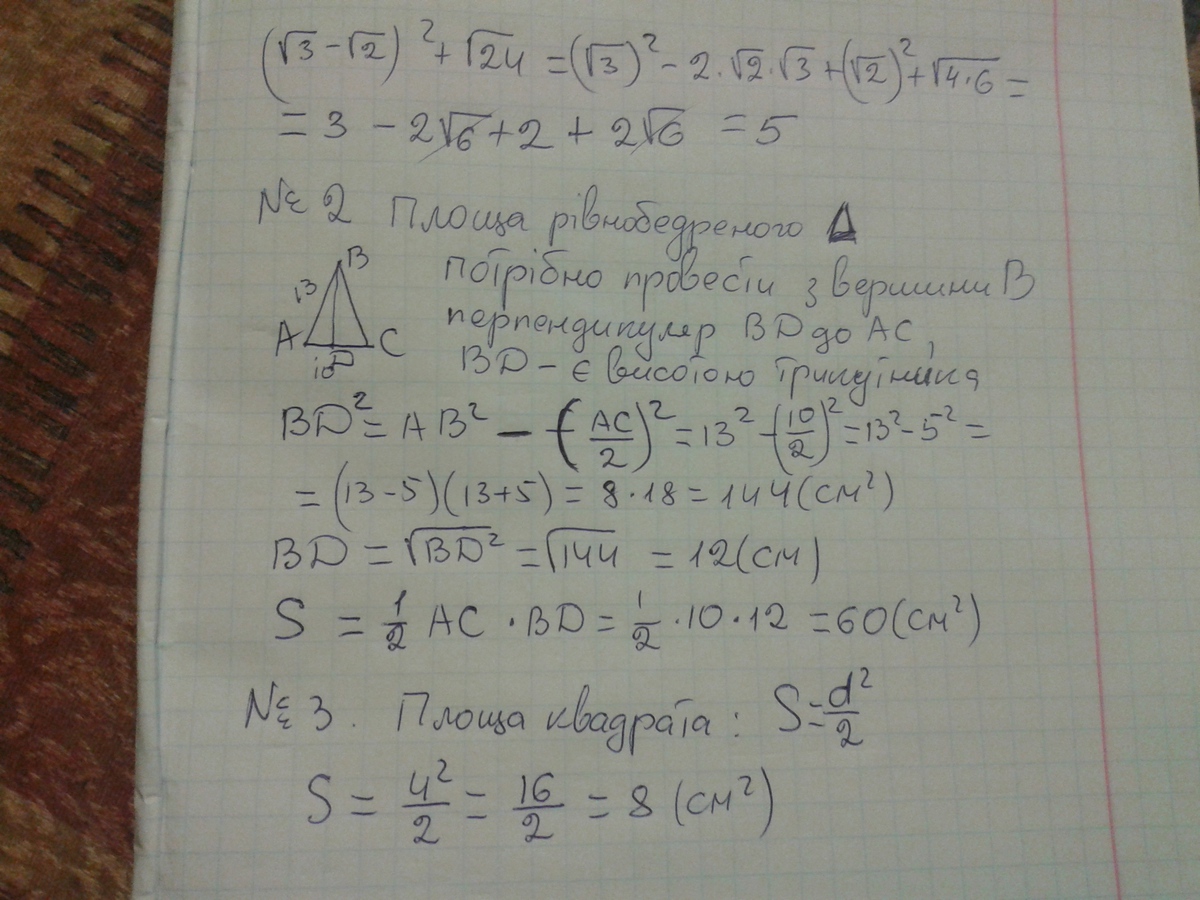 (√3 - √2)² + √24 = (√3)² - 2·√2·√3 + (√2)² + √4·6 =
= 3 - 2√6 + 2 + 2√6 = 5
№ 2 Площа рівнобедреного Δ
потрібно провести з вершини B
перпендикуляр BD до AC,
BD - є висотою трикутника
B
13
A
C
D
10
BD² = AB² - (AC/2)² = 13² - (10/2)² = 13² - 5² =
= (13 - 5)(13 + 5) = 8·18 = 144 (см²)
BD = √BD² = √144 = 12 (см)
S = 1/2 AC · BD = 1/2 · 10 · 12 = 60 (см²)
№ 3. Площа квадрата: S = d²/2
S = 4²/2 = 16/2 = 8 (см²)